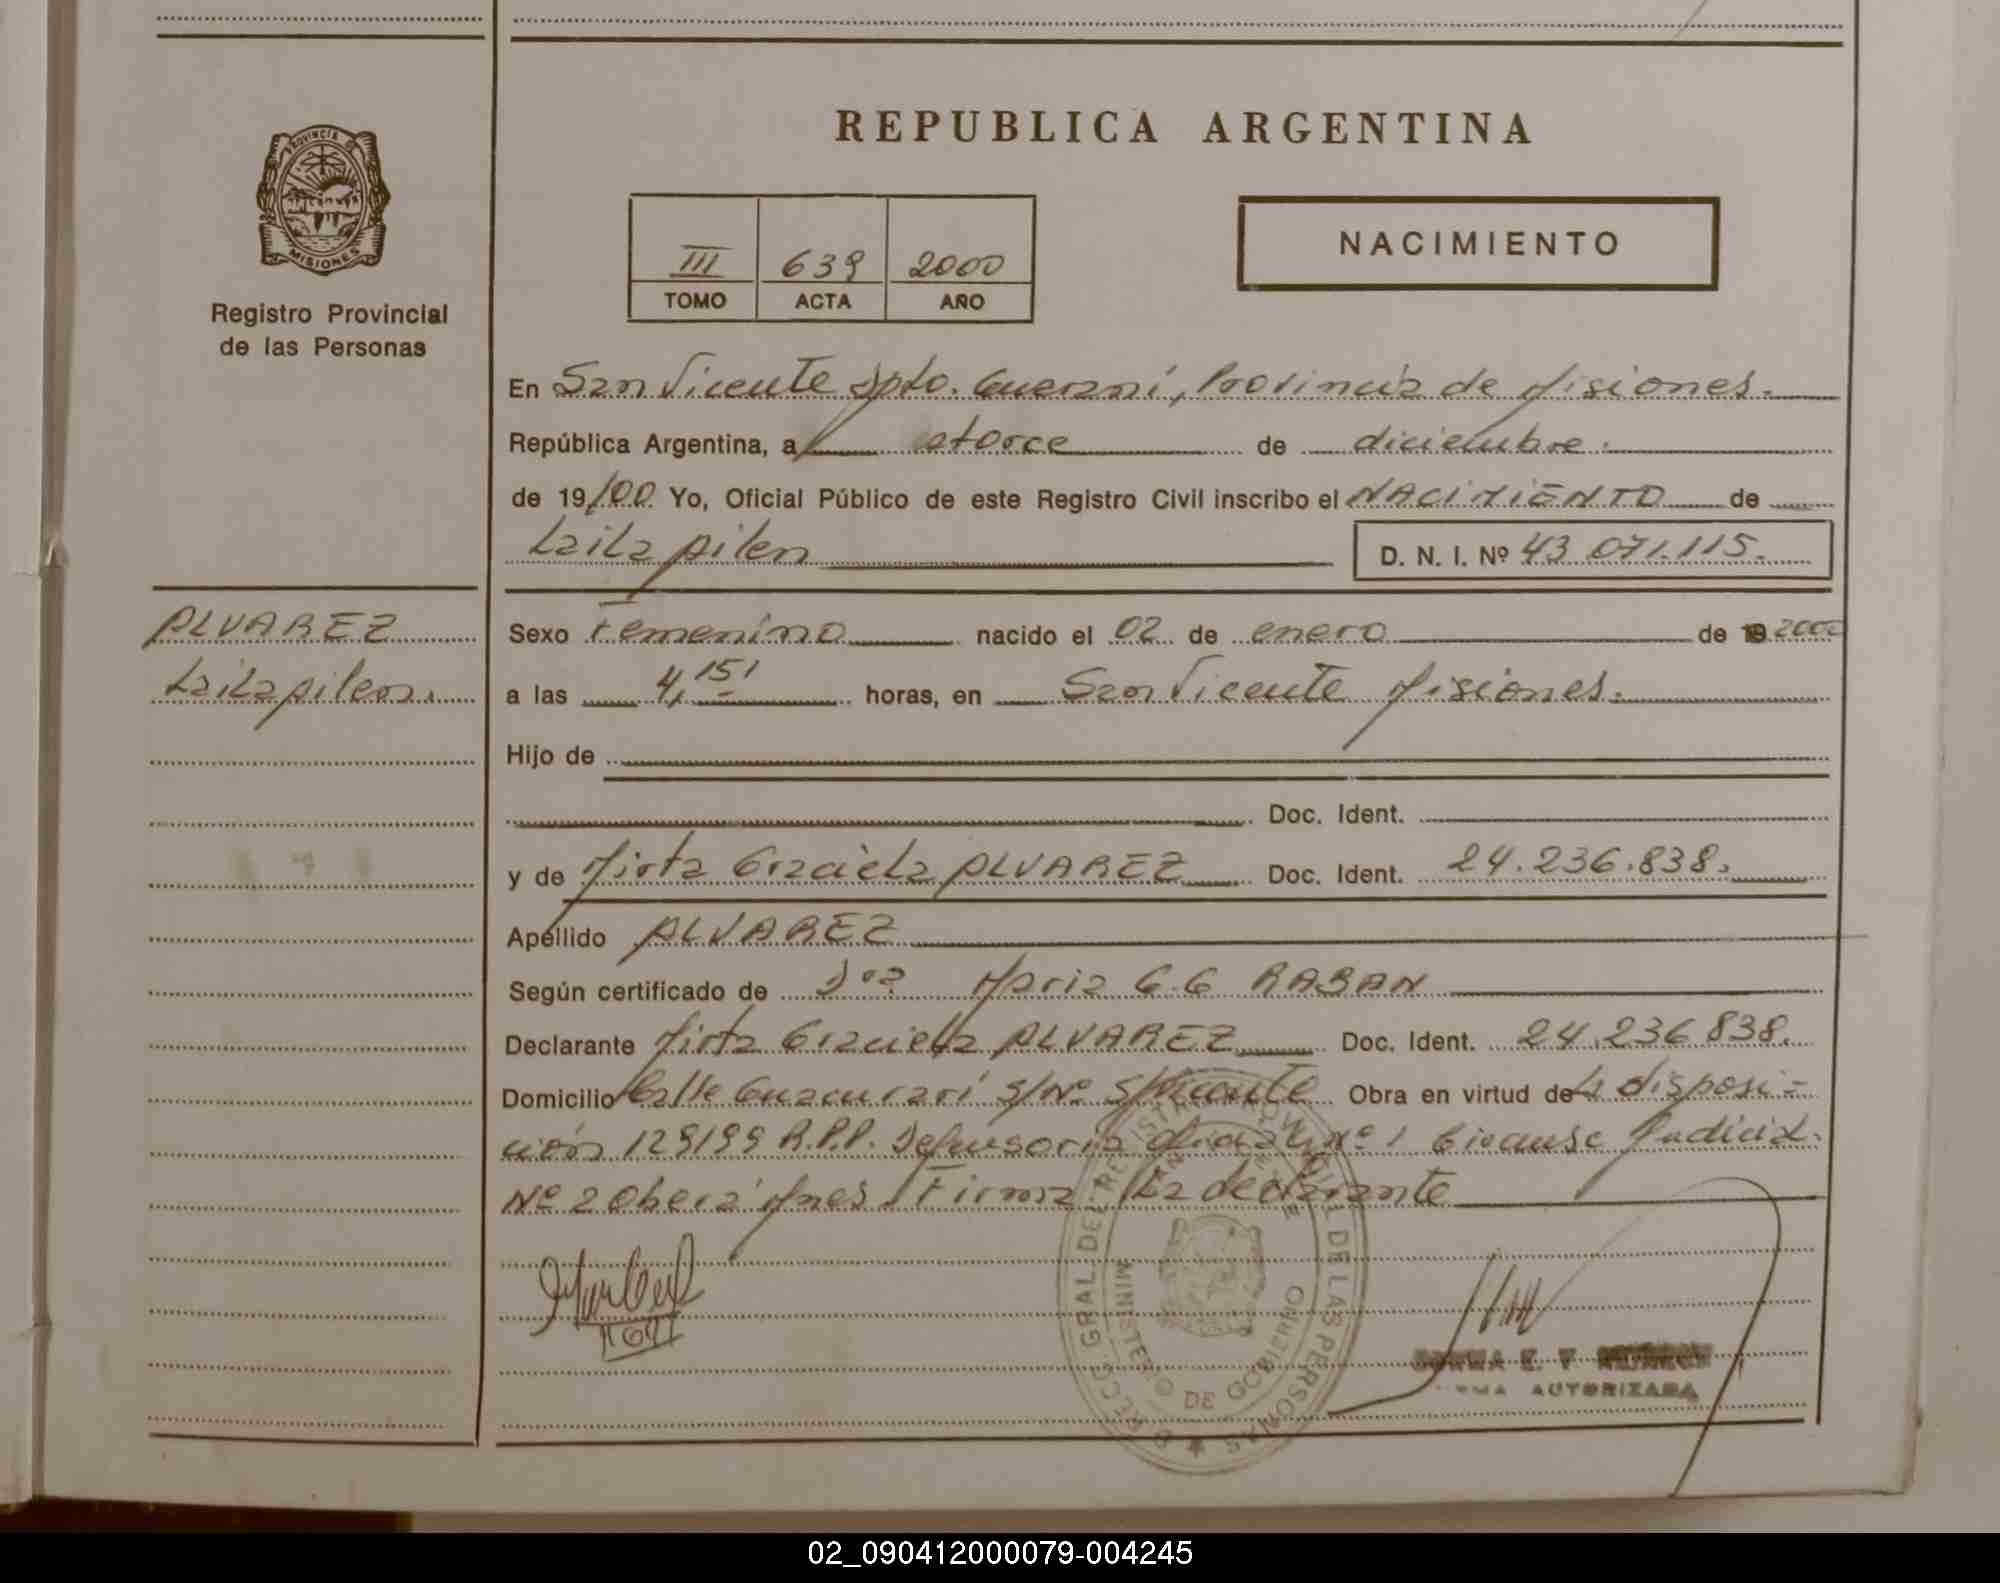 REPUBLICA ARGENTINA
PROVINCIA DE
MISIONES
Registro Provincial
de las Personas
III 639 2000
TOMO ACTA AÑO
NACIMIENTO
En San Vicente Dpto. Guaraní, Provincia de Misiones.
República Argentina, a catorce de diciembre.
de 19/00 Yo, Oficial Público de este Registro Civil inscribo el NACIMIENTO de
Laila Ailen D. N. I. Nº 43.071.115.
ALVAREZ
Laila Ailen.
Sexo Femenino nacido el 02 de enero de 2000
a las 4,15' horas, en San Vicente Misiones.
Hijo de
Doc. Ident.
y de Mirta Graciela ALVAREZ Doc. Ident. 24.236.838.
Apellido ALVAREZ
Según certificado de Dra Maria G. G RABAN
Declarante Mirta Graciela ALVAREZ Doc. Ident. 24.236 838.
Domicilio Calle Guacurarí s/Nº S/Vicente Obra en virtud de La disposi=
ción 129/99 R.P.P. Defensoria Nº 1 Circunsc Judicial.
Nº 2 Oberá Mnes. Firma La declarante
REGISTRO PROVINCIAL DE LAS PERSONAS
MINISTERIO DE GOBIERNO
E. F.
FIRMA AUTORIZADA
02_090412000079-004245